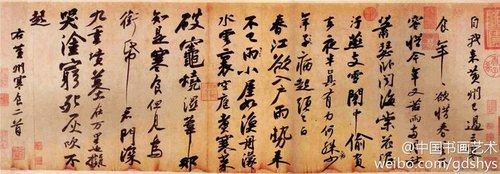 自我來黃州已過三寒
食年年欲惜春春去不
容惜今年又苦雨兩月秋
蕭瑟卧聞海棠花泥
汙燕支雪闇中偷負
去夜半真有力何殊少
年子病起頭已白
春江欲入戶雨勢來
不已雨小屋如漁舟濛濛
水雲裏空庖煮寒菜
破竈燒濕葦那
知是寒食但見烏
銜帋君門深
九重墳墓在万里也擬
哭塗窮死灰吹不
起
右黃州寒食二首
@中国书画艺术
weibo.com/gdshys